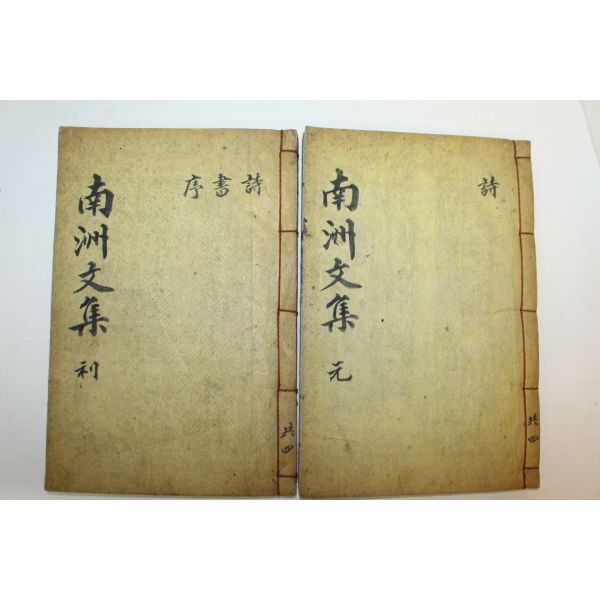 詩
南洲文集 元
共四
詩書序
南洲文集 利
共四